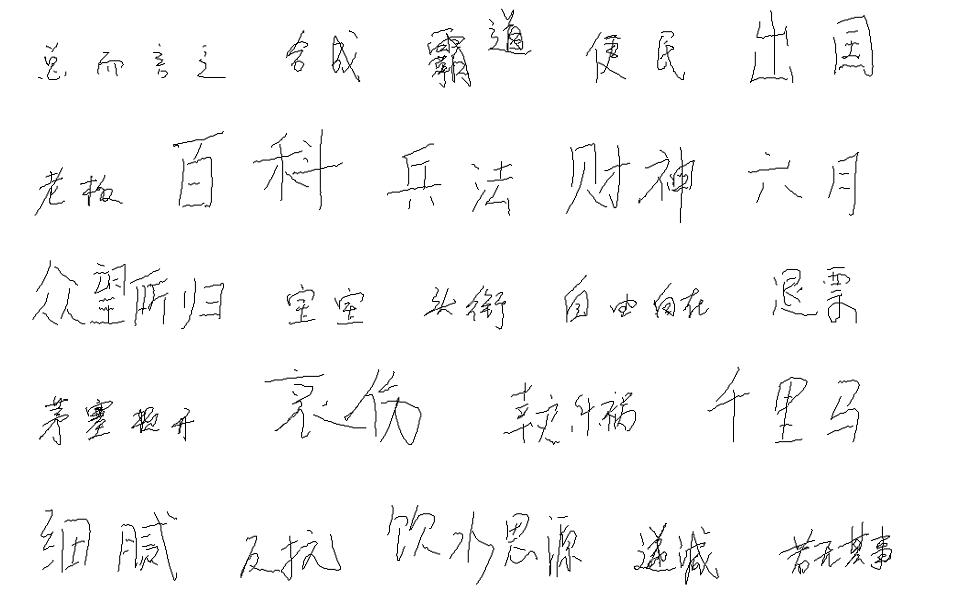 总而言之 合成 霸道 便民 出国
老板 百科 兵法 财神 六月
众望所归 室室 头衔 自由自在 退票
茅塞顿开 哀伤 千里马
细腻 反抗 饮水思源 递减 若无其事